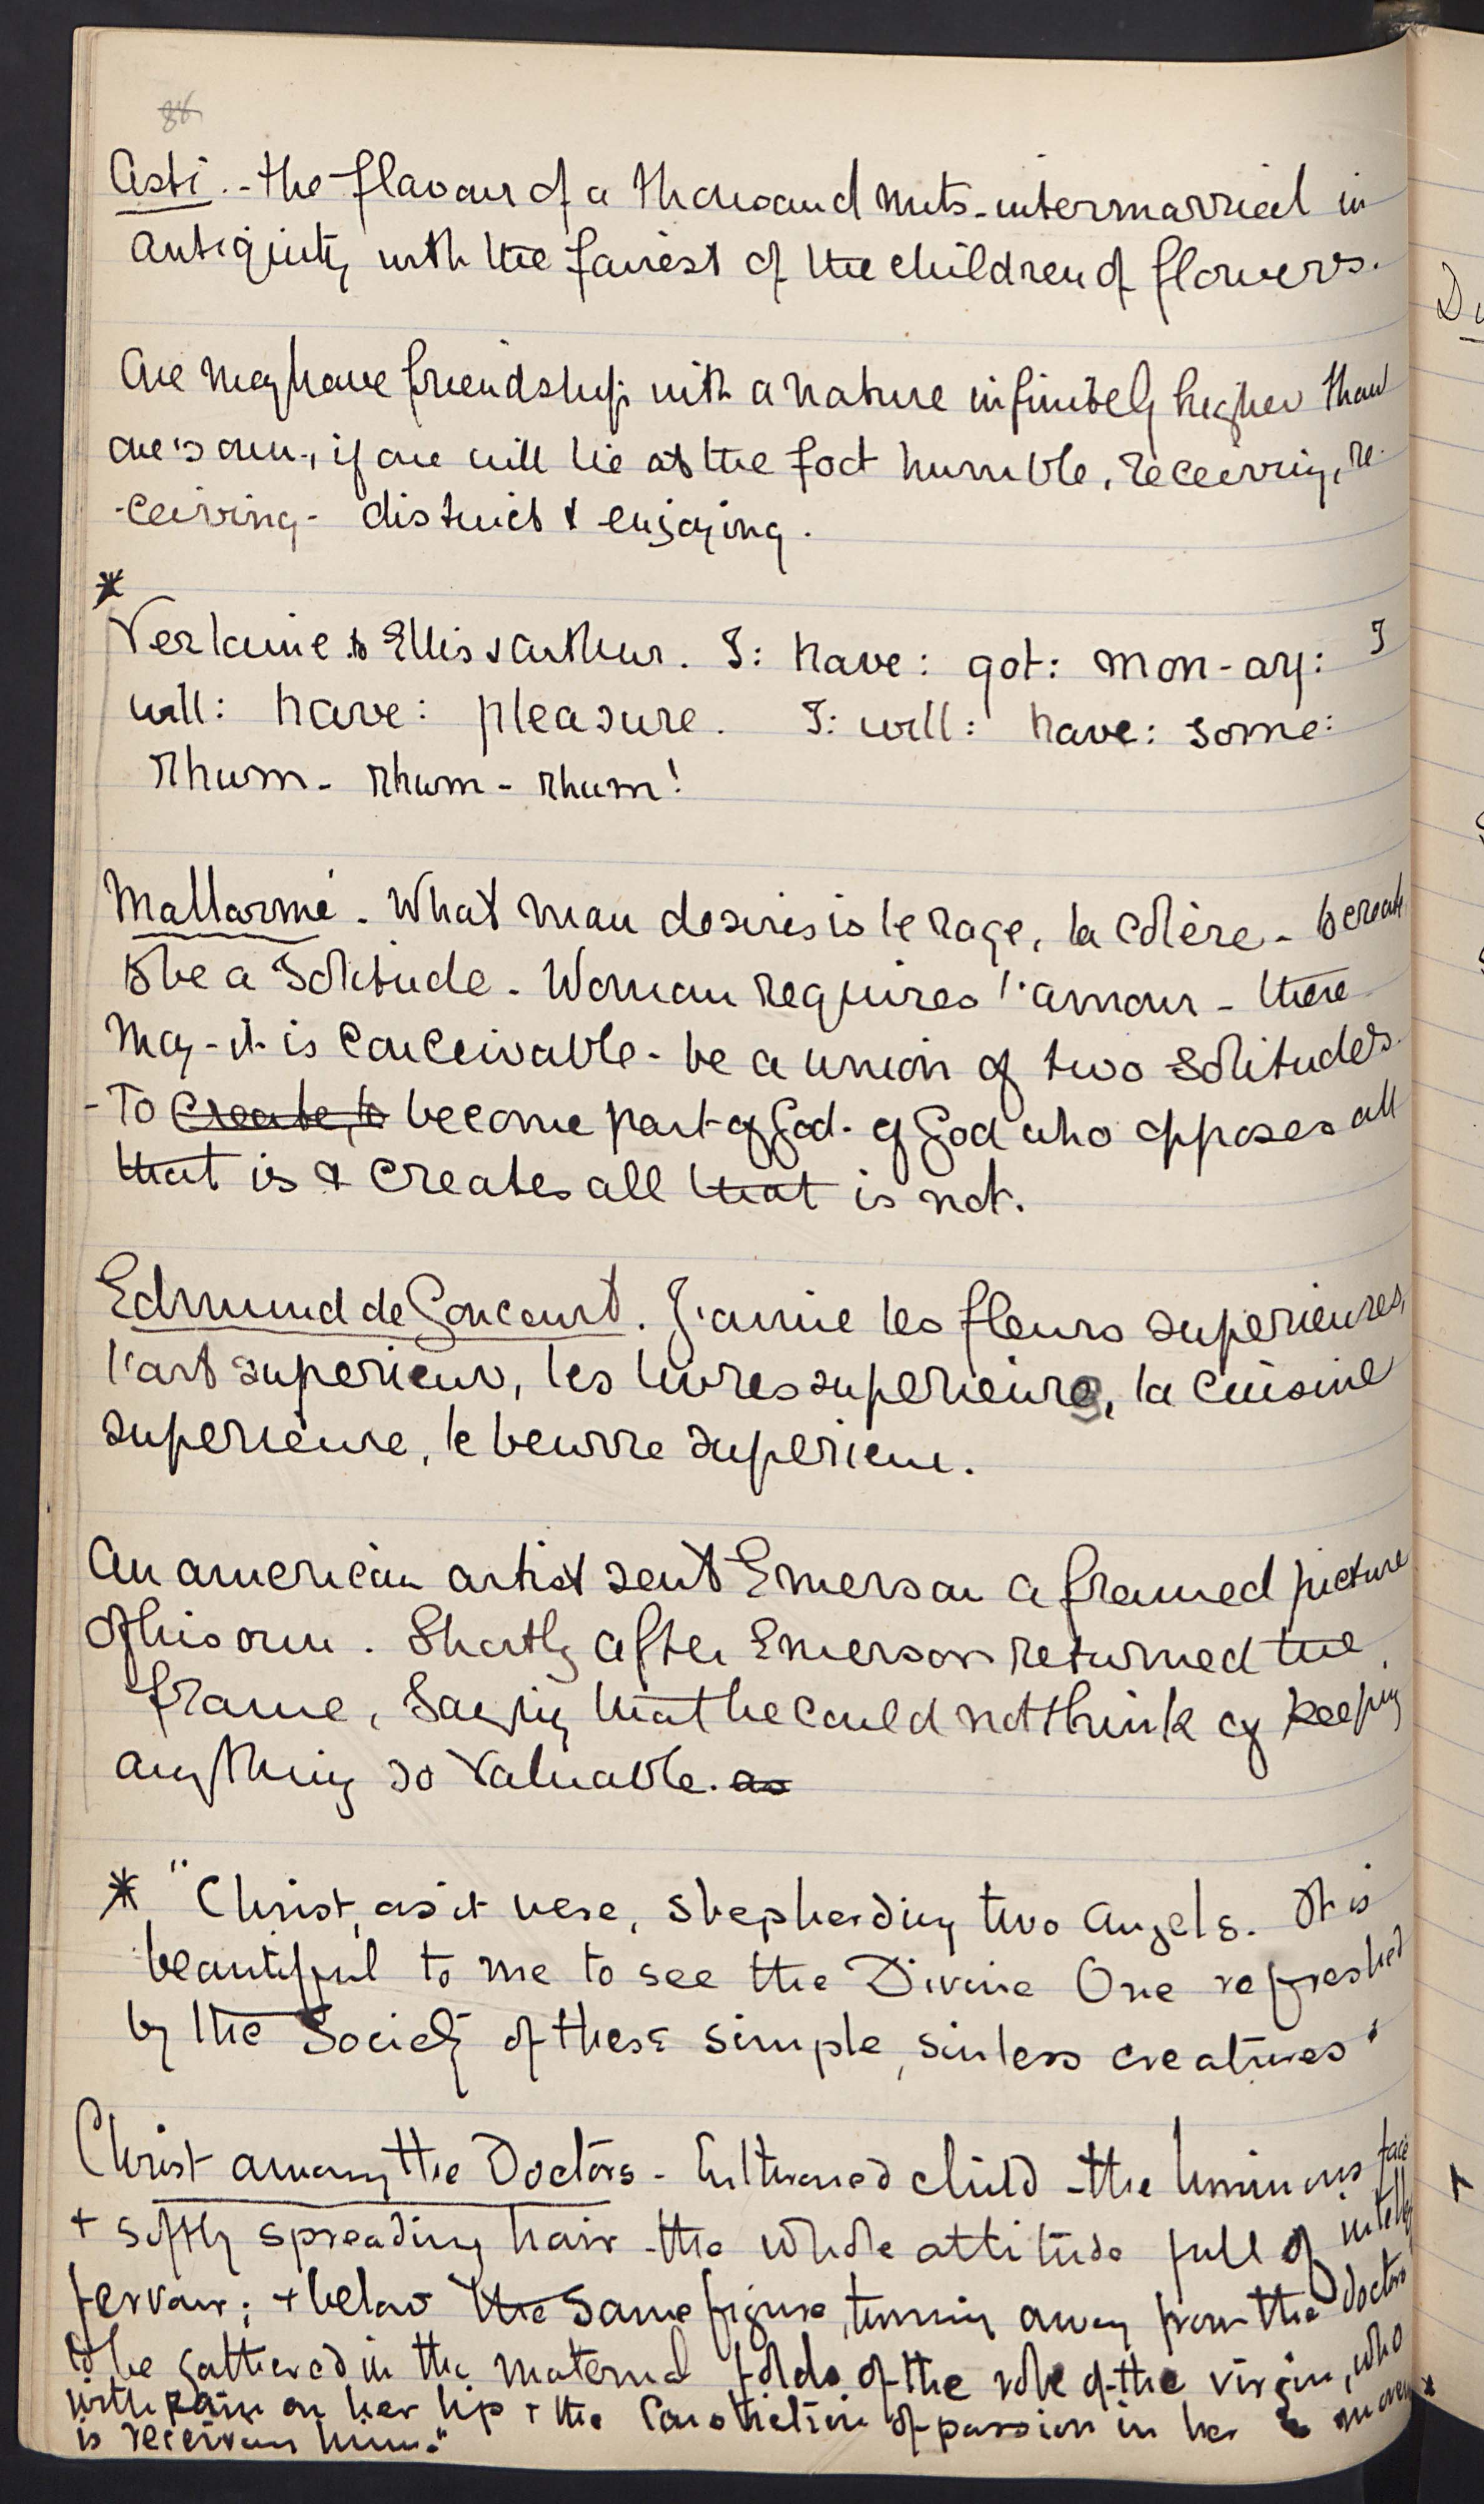 88
Asti. - the flavour of a thousand nuts - intermarried in
antiquity with the fairest of the children of flowers.
One may have friendship with a nature infinitely higher than
one's own, if one will lie at the foot humble, receiving, re-
-ceiving - distinct & enjoying.
*
Verlaine to Ellis & Arthur. I: have: got: mon-ay: I
will: have: pleasure. I: will: have: some:
Rhum - rhum - rhum!
Mallarmé. What man desires is le rage, la colère - to create
to be a solitude. Woman requires l'amour - there
may - it is conceivable - be a union of two solitudes.
- To create, to become part of God - of God who opposes all
that is & creates all that is not.
Edmund de Goncourt. J'aime les fleurs superieures,
l'art superieur, les livres superieurs, la cuisine
superieure, le beurre superieur.
An american artist sent Emerson a framed picture
of his own. Shortly after Emerson returned the
frame, saying that he could not think of keeping
anything so valuable. as
* "Christ, as it were, shepherding two Angels. It is
beautiful to me to see the Divine One refreshed
by the Society of these simple, sinless creatures"
Christ among the Doctors - child - the luminous face
+ softly spreading hair - the whole attitude full of
fervour; + below the same figure, turning away from the Doctors
to be gathered in the maternal folds of the robe of the virgin, who
with pain on her lip + the constriction of passion in her
is receiving him."